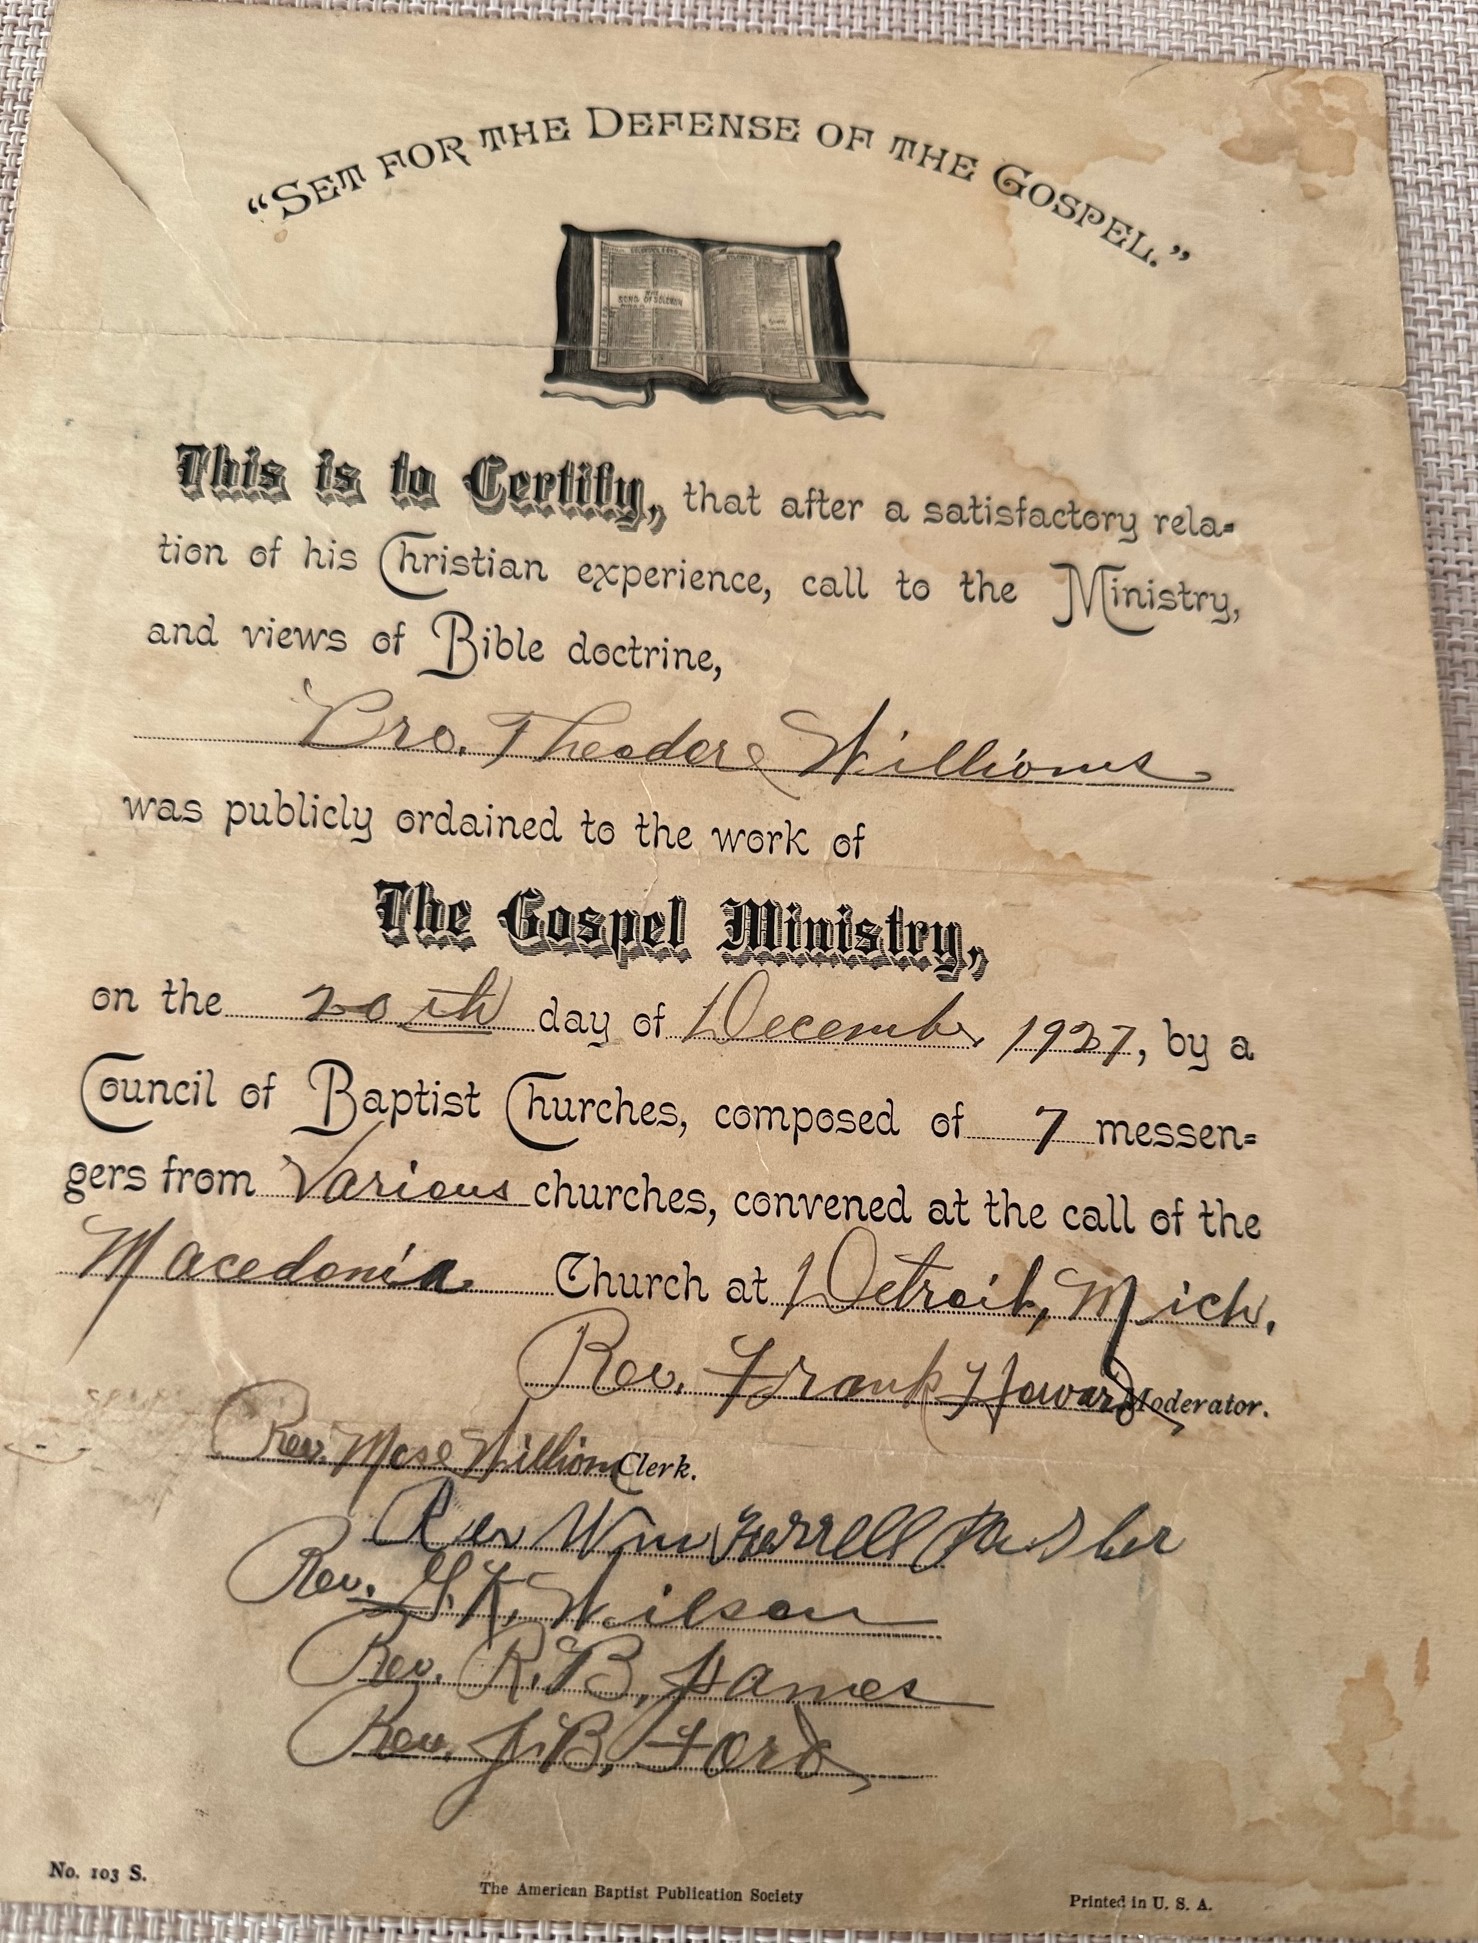 “SET FOR THE DEFENSE OF THE GOSPEL.”
SONG OF SOLOMON
This is to Certify, that after a satisfactory rela-
tion of his Christian experience, call to the Ministry,
and views of Bible doctrine,
Bro. Theodore Williams
was publicly ordained to the work of
The Gospel Ministry,
on the 20th day of December 1927, by a
Council of Baptist Churches, composed of 7 messen-
gers from Various churches, convened at the call of the
Macedonia Church at Detroit, Mich.
Rev. Frank Howard Moderator.
Rev. Mose William Clerk.
Rev Wm Ferrell
Rev. G. K. Wilson
Rev. R. B. James
Rev. J. B. Ford
No. 103 S.
The American Baptist Publication Society
Printed in U. S. A.